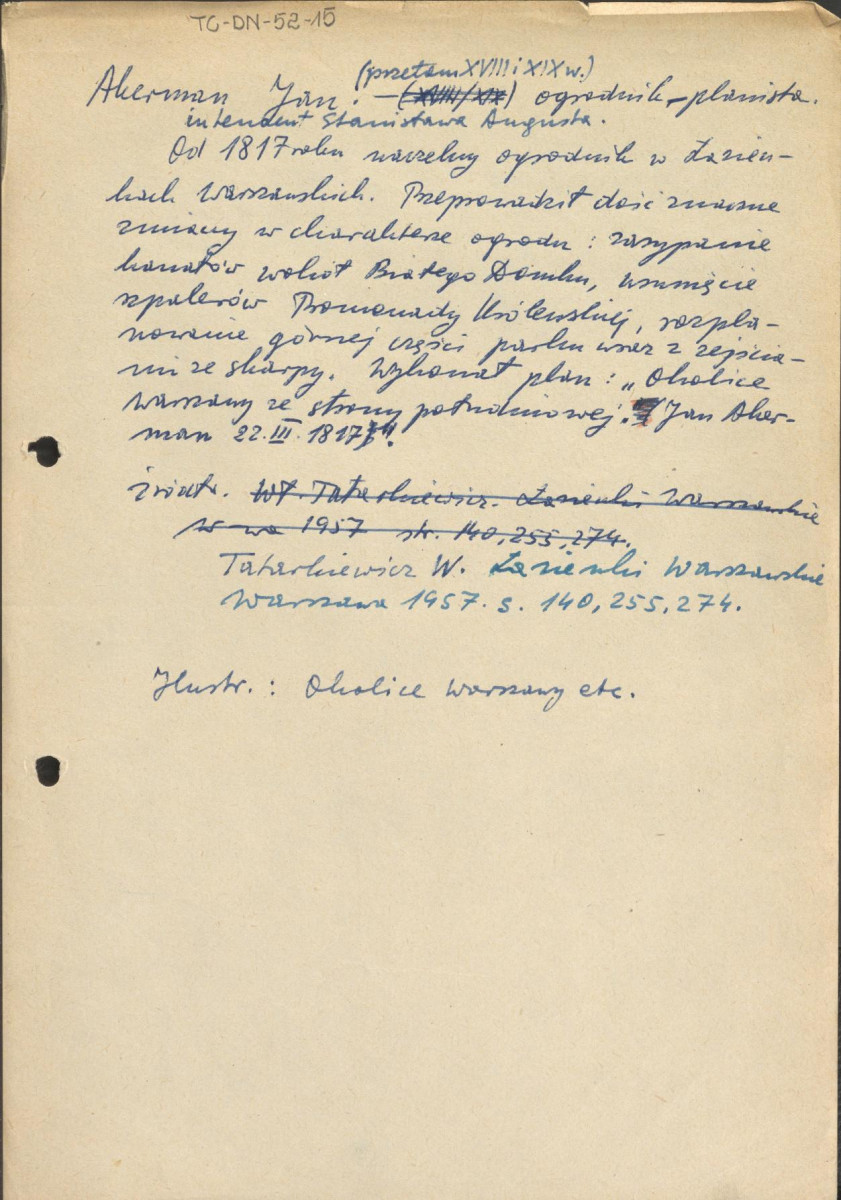 TC-DN-52-15
(przełom XVIII i XIX w.)
Akerman Jan. – (XVIII/XIX) ogrodnik-planista.
intendent Stanisława Augusta.
Od 1817 roku naczelny ogrodnik w Łazien-
kach Warszawskich. Przeprowadził dość znaczne
zmiany w charakterze ogrodu: zasypanie
kanałów wokół Białego Domku, usunięcie
szpalerów Promenady Królewskiej, rozpla-
nowanie górnej części parku wraz z zejścia-
mi ze skarpy. Wykonał plan: „Okolice
Warszawy ze strony południowej. Jan Aker-
man 22.III.1817".
źródł. Wł. Tatarkiewicz. Łazienki Warszawskie
W-wa 1957 str. 140, 255, 274.
Tatarkiewicz W. Łazienki Warszawskie
Warszawa 1957. s. 140, 255, 274.
Ilustr.: Okolice Warszawy etc.